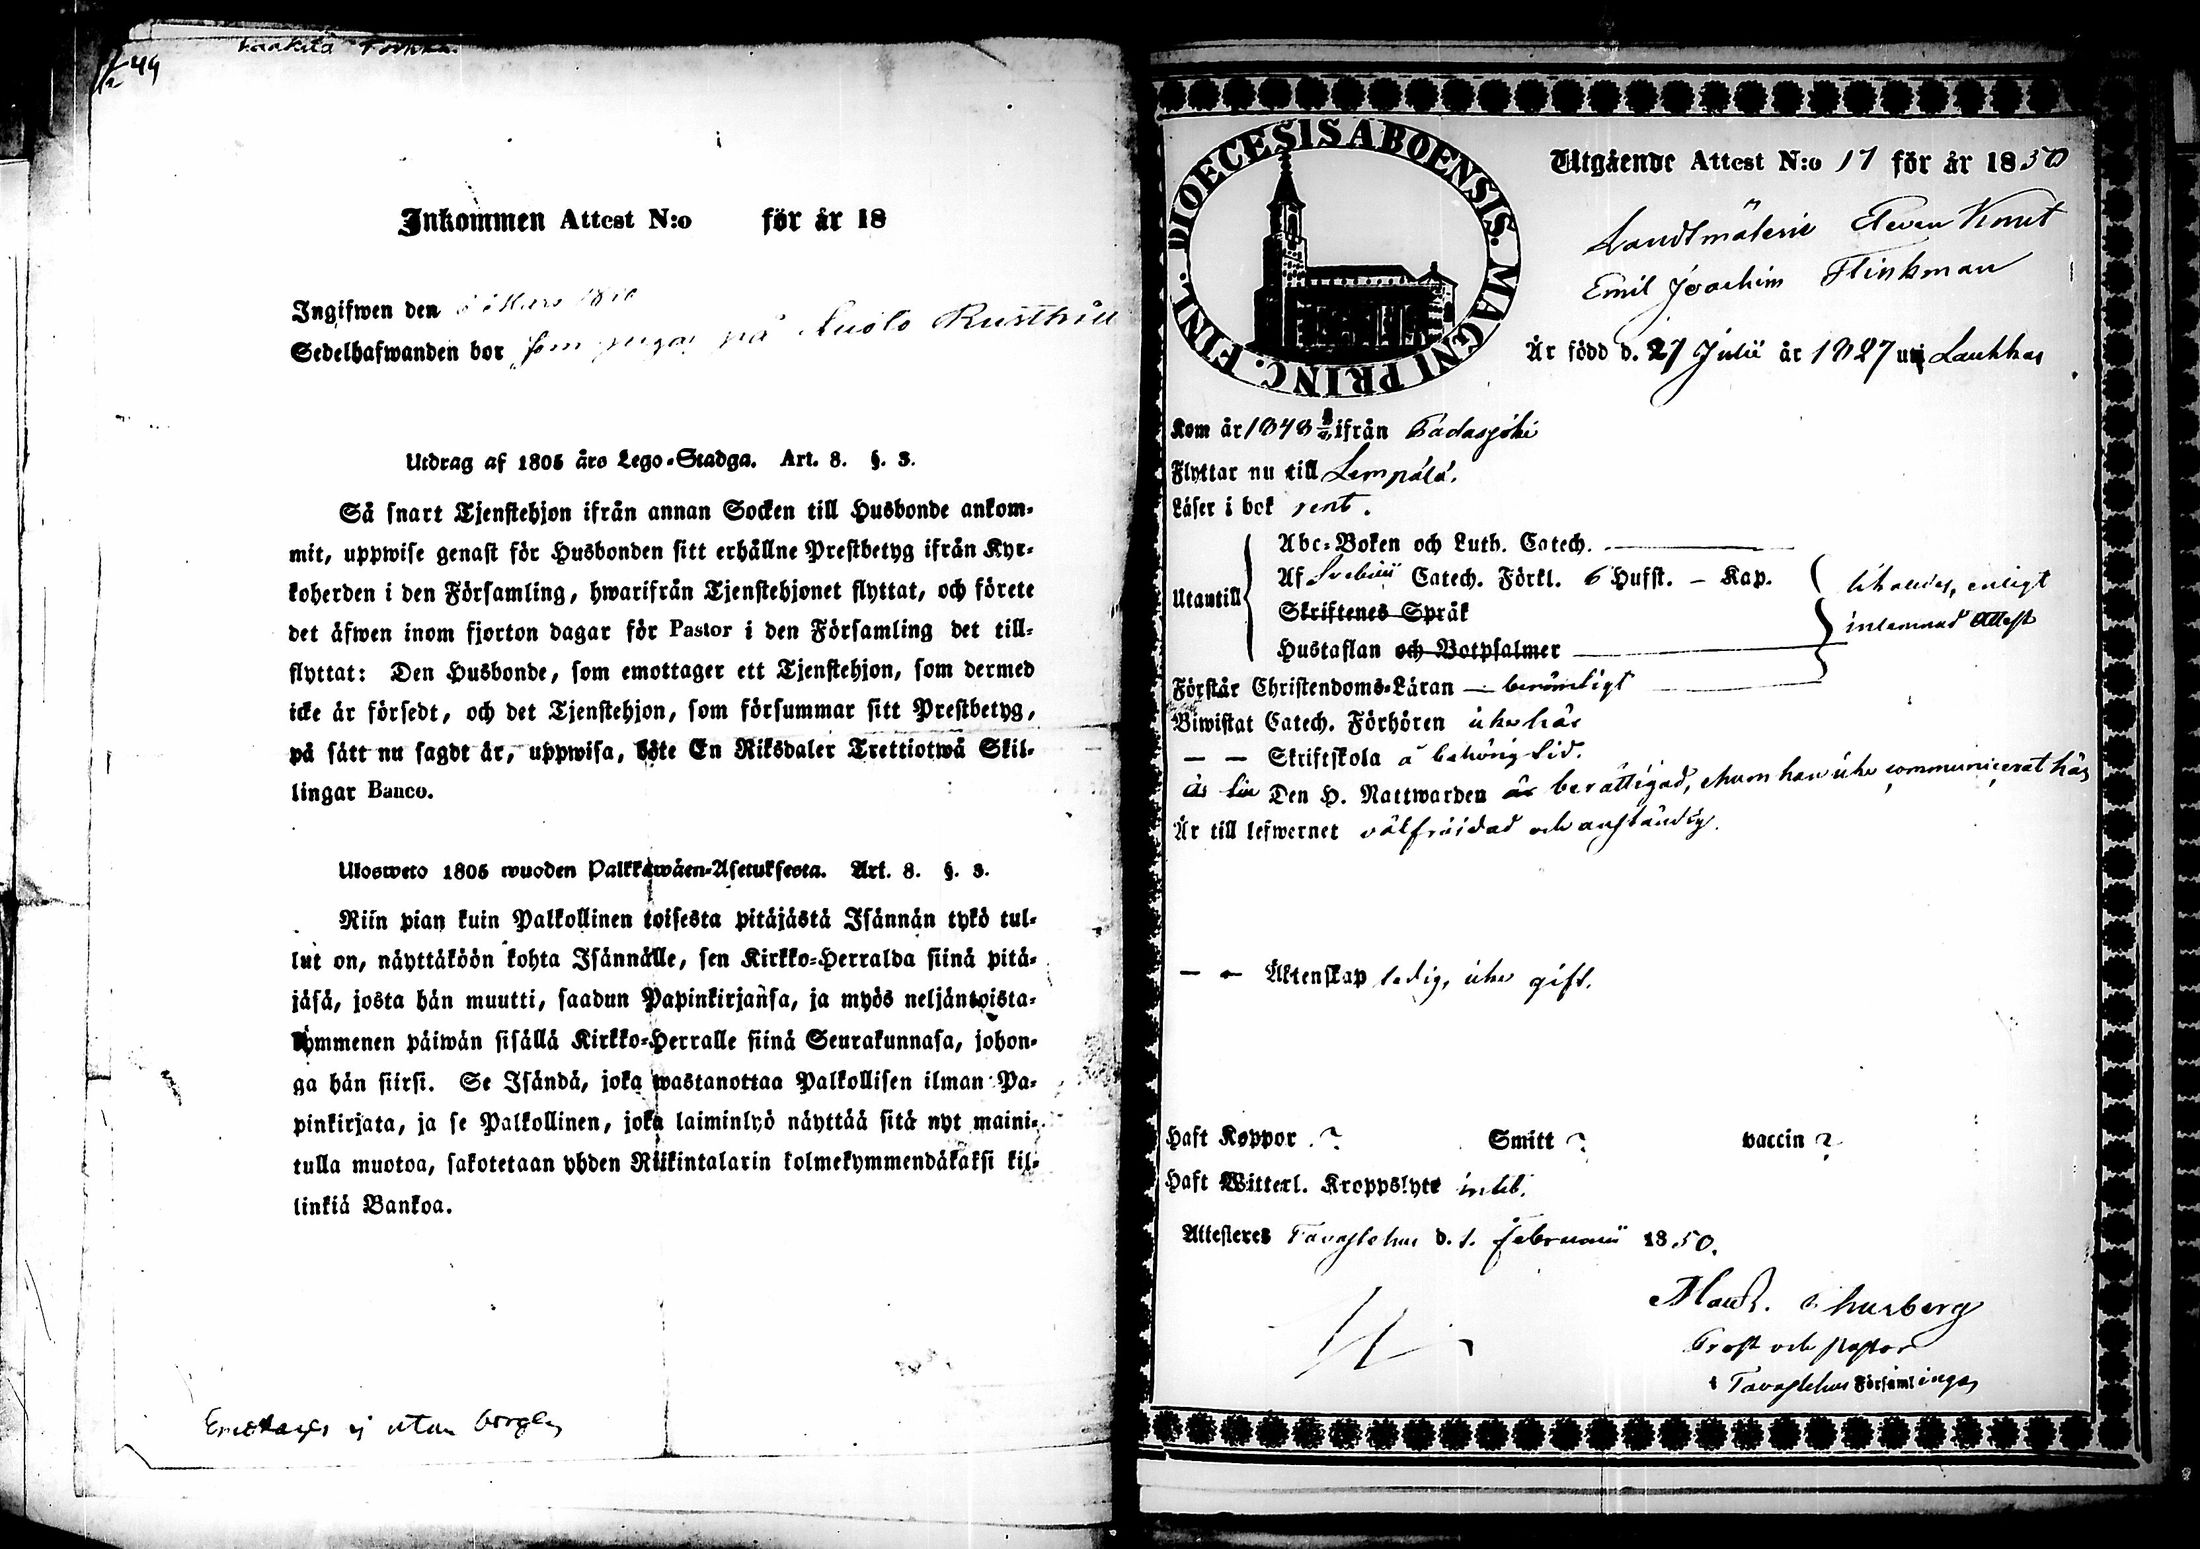 49
Inkommen Attest N:o för år 18
Ingifwen den Mars
Sedelhafwanden bor som på Kuolo Rusthåll
Utdrag af 1805 års Lego-Stadga. Art. 8. §. 3.
Så snart Tjenstehjon ifrån annan Socken till Husbonde ankom-
mit, uppwise genast för Husbonden sitt erhållne Prestbetyg ifrån Kyr-
koherden i den Församling, hwarifrån Tjenstehjonet flyttat, och förete
det äfwen inom fjorton dagar för Pastor i den Församling det till-
flyttat: Den Husbonde, som emottager ett Tjenstehjon, som dermed
icke är försedt, och det Tjenstehjon, som försummar sitt Prestbetyg,
på sätt nu sagdt är, uppwisa, böte En Riksdaler Trettiotwå Skil-
lingar Banco.
Ulosweto 1805 wuoden Palkkawäen-Asetuksesta. Art. 8. §. 3.
Niin pian kuin Palkollinen toisesta pitäjästä Isännän tykö tul-
lut on, näyttäköön kohta Isännälle, sen Kirkko-Herralda siinä pitä-
jäsä, josta hän muutti, saadun Papinkirjansa, ja myös neljäntoista-
kymmenen päiwän sisällä Kirkko-Herralle siinä Seurakunnasa, johon-
ga hän siirsi. Se Isändä, joka wastanottaa Palkollisen ilman Pa-
pinkirjata, ja se Palkollinen, joka laiminlyö näyttää sitä nyt maini-
tulla muotoa, sakotetaan yhden Riikintalarin kolmekymmendäkaksi kil-
linkiä Bankoa.
Emottages ej utan borgen
DIOECESIS ABOENSIS. MAGNI PRINC. FINL.
Utgående Attest N:o 17 för år 1850
Landtmäterie Eleven Knut
Emil Joachim Flinkman
Är född d. 27 Julii år 1827 uti Laukkas
Kom år 1848 ifrån Padasjoki
Flyttar nu till Lempälä.
Läser i bok rent.
Utantill
Abc-Boken och Luth. Catech.
Af Svebilii Catech. Förkl. 6 Hufst. — Kap.
Skriftenes Språk
Hustaflan och Botpsalmer
likaledes, enligt
inlemnad Attest
Förstår Christendoms-Läran — berömligt
Biwistat Catech. Förhören icke här
— — Skriftskola å behörig tid.
är till Den H. Nattwarden är berättigad, ehuru han icke communicerat här
Är till lefwernet välfräjdad och anständig.
— — Äktenskap ledig, icke gift.
Haft Koppor ? Smitt ? vaccin ?
Haft Witterl. Kroppslyte intet.
Attesteres Tavastehus d. 1. Februarii 1850.
Prost och Pastor
i Tavastehus Församlingar